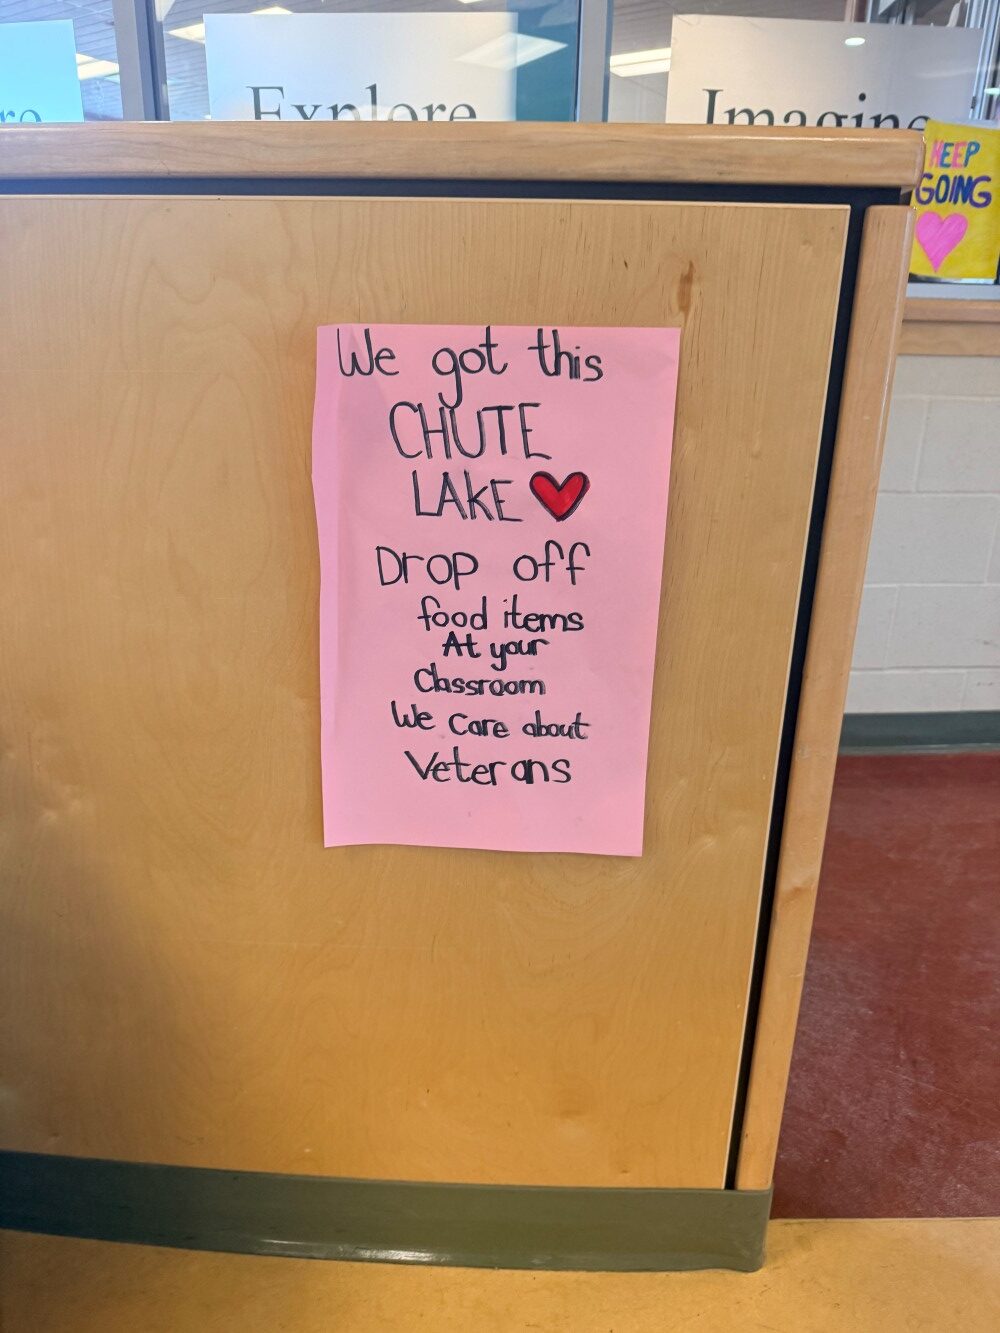 re
Explore
Imagine
KEEP
GOING
We got this
CHUTE
LAKE
Drop off
food items
At your
Classroom
We care about
Veterans